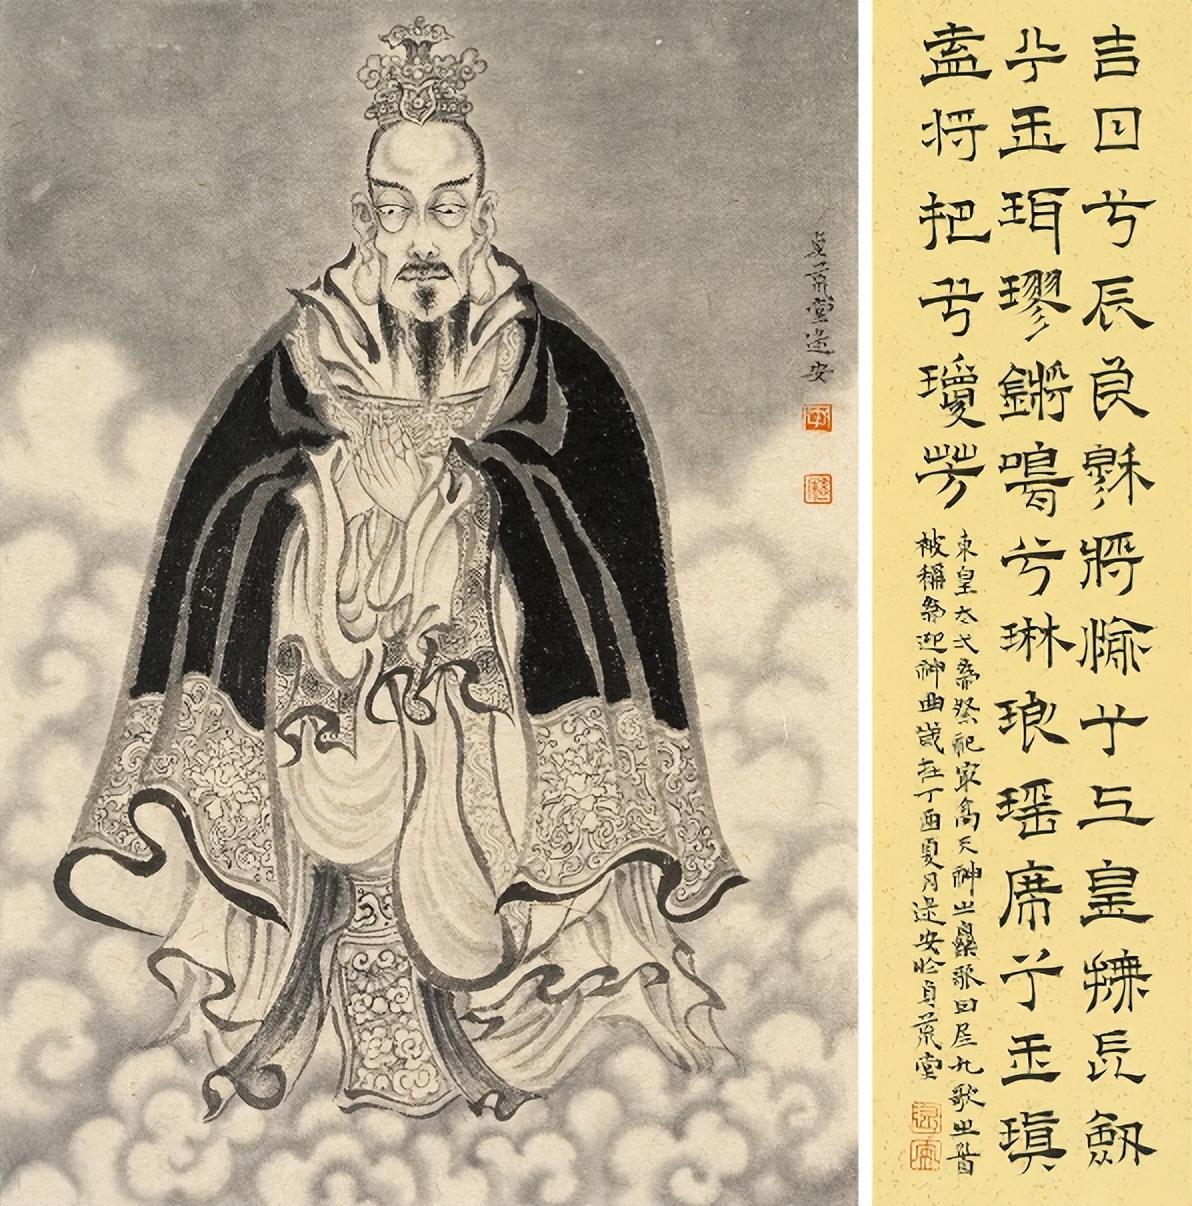 吉日兮辰良穆將愉兮上皇撫長劍
兮玉珥璆鏘鳴兮琳琅瑶席兮玉瑱
盍將把兮瓊芳
東皇太弌爲祭祀㝡高天神之樂歌囙居九歌之首
被稱爲迎神曲歲在丁酉夏月逯安於貞荒堂
貞荒堂逯安